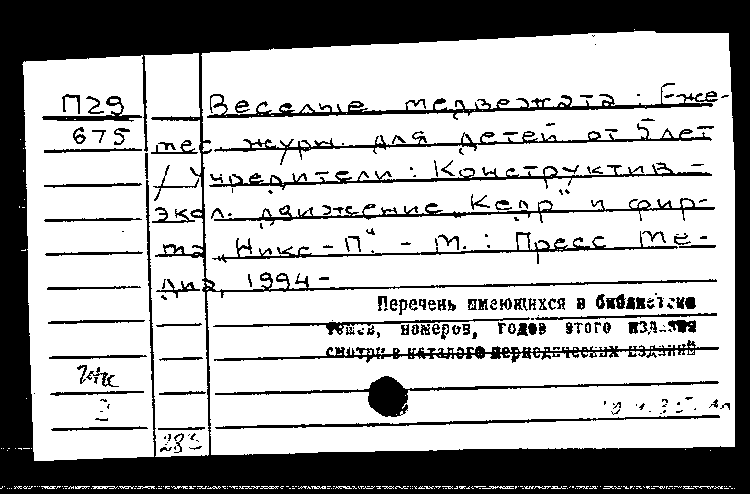 П29 Веселые медвежата: Еже-
675 мес. журн. для детей от 5 лет
/ Учредители: Конструктив-
экол. движение „Кедр" и фир-
ма „Никс-П". - М.: Пресс Ме-
диа, 1994-
Перечень имеющихся в библиотеке
томов, номеров, годов этого издания
смотри в каталоге периодических изданий
2